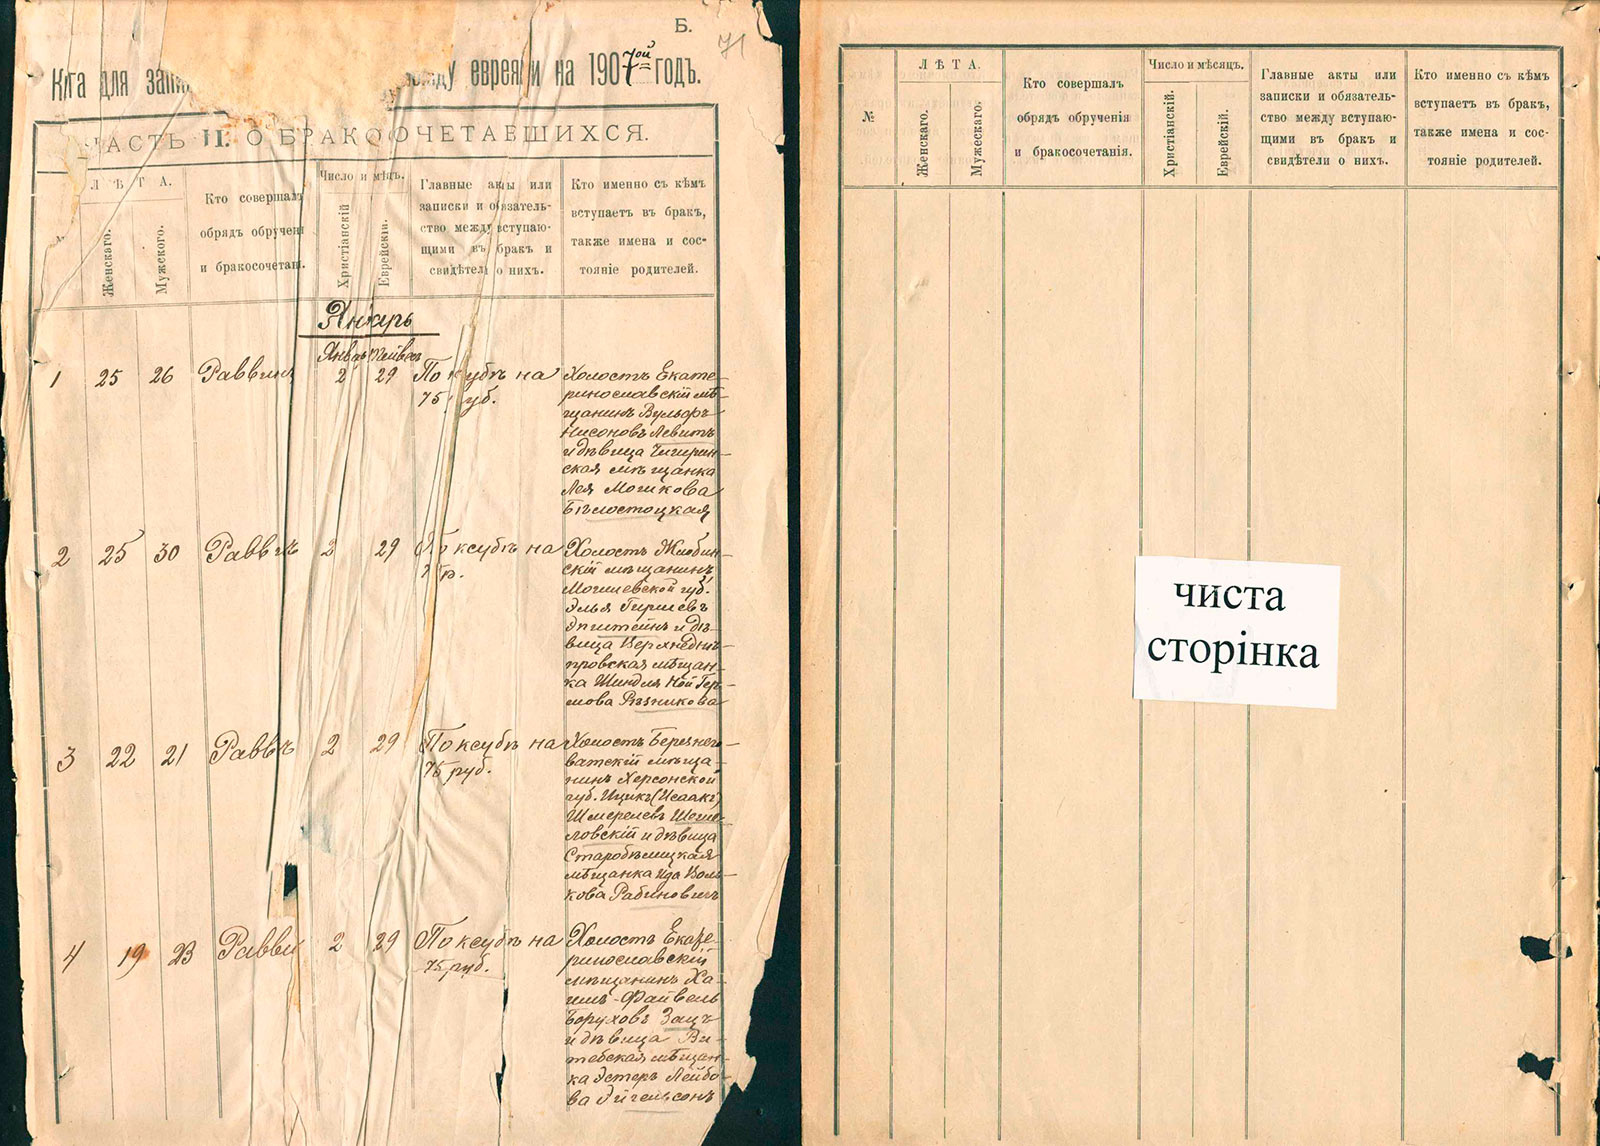 Б.
71
К га для запи между евреями на 1907ой годъ.
ЧАСТЬ II. О БРАКОСОЧЕТАВШИХСЯ.
№
ЛѢТА.
Женскаго.
Мужского.
Кто совершалъ
обрядъ обрученi
и бракосочетан.
Число и мѣц.
Христіанскій
Еврейскій.
Главные акты или
записки и обязатель-
ство между вступаю-
щими въ бракъ и
свидѣтели о нихъ.
Кто именно съ кѣмъ
вступаетъ въ бракъ,
также имена и сос-
тояніе родителей.
Январь
1 25 26 Раввинъ 2 29 По ксубѣ на
75 руб.
Холостъ Екате-
ринославскій мѣ-
щанинъ Вульфъ
Нисоновъ Левитъ
и дѣвица Чигирин-
ская мѣщанка
Лея Мошкова
Бѣлостоцкая
2 25 30 Раввинъ 2 29 По ксубѣ на
75 р.
Холостъ Жлобин-
скій мѣщанинъ
Могилевской губ.
Элья Гиршевъ
Эпштейнъ и дѣ-
вица Верхнеднѣ-
провская мѣщан-
ка Шиндля Ной Гер-
шова Рѣзникова
3 22 21 Раввъ 2 29 По ксубѣ на
75 руб.
Холостъ Березнего-
ватскій мѣща-
нинъ Херсонской
губ. Ицикъ (Исаакъ)
Шмерелевъ
и дѣвица
Старобѣлицкая
мѣщанка Ида Воль-
кова Рабиновичъ
4 19 23 Равви 2 29 По ксубѣ на
75 руб.
Холостъ Екате-
ринославскій
мѣщанинъ Ха-
имъ-Файвель
Боруховъ Зацъ
и дѣвица Ви-
тебская мѣщан-
ка Эстеръ Лейбо-
ва Эйгельсонъ
№
ЛѢТА.
Женскаго.
Мужескаго.
Кто совершалъ
обрядъ обрученія
и бракосочетанія.
Число и мѣсяцъ.
Христіанскій.
Еврейскій.
Главные акты или
записки и обязатель-
ство между вступаю-
щими въ бракъ и
свидѣтели о нихъ.
Кто именно съ кѣмъ
вступаетъ въ бракъ,
также имена и сос-
тояніе родителей.
чиста
сторінка